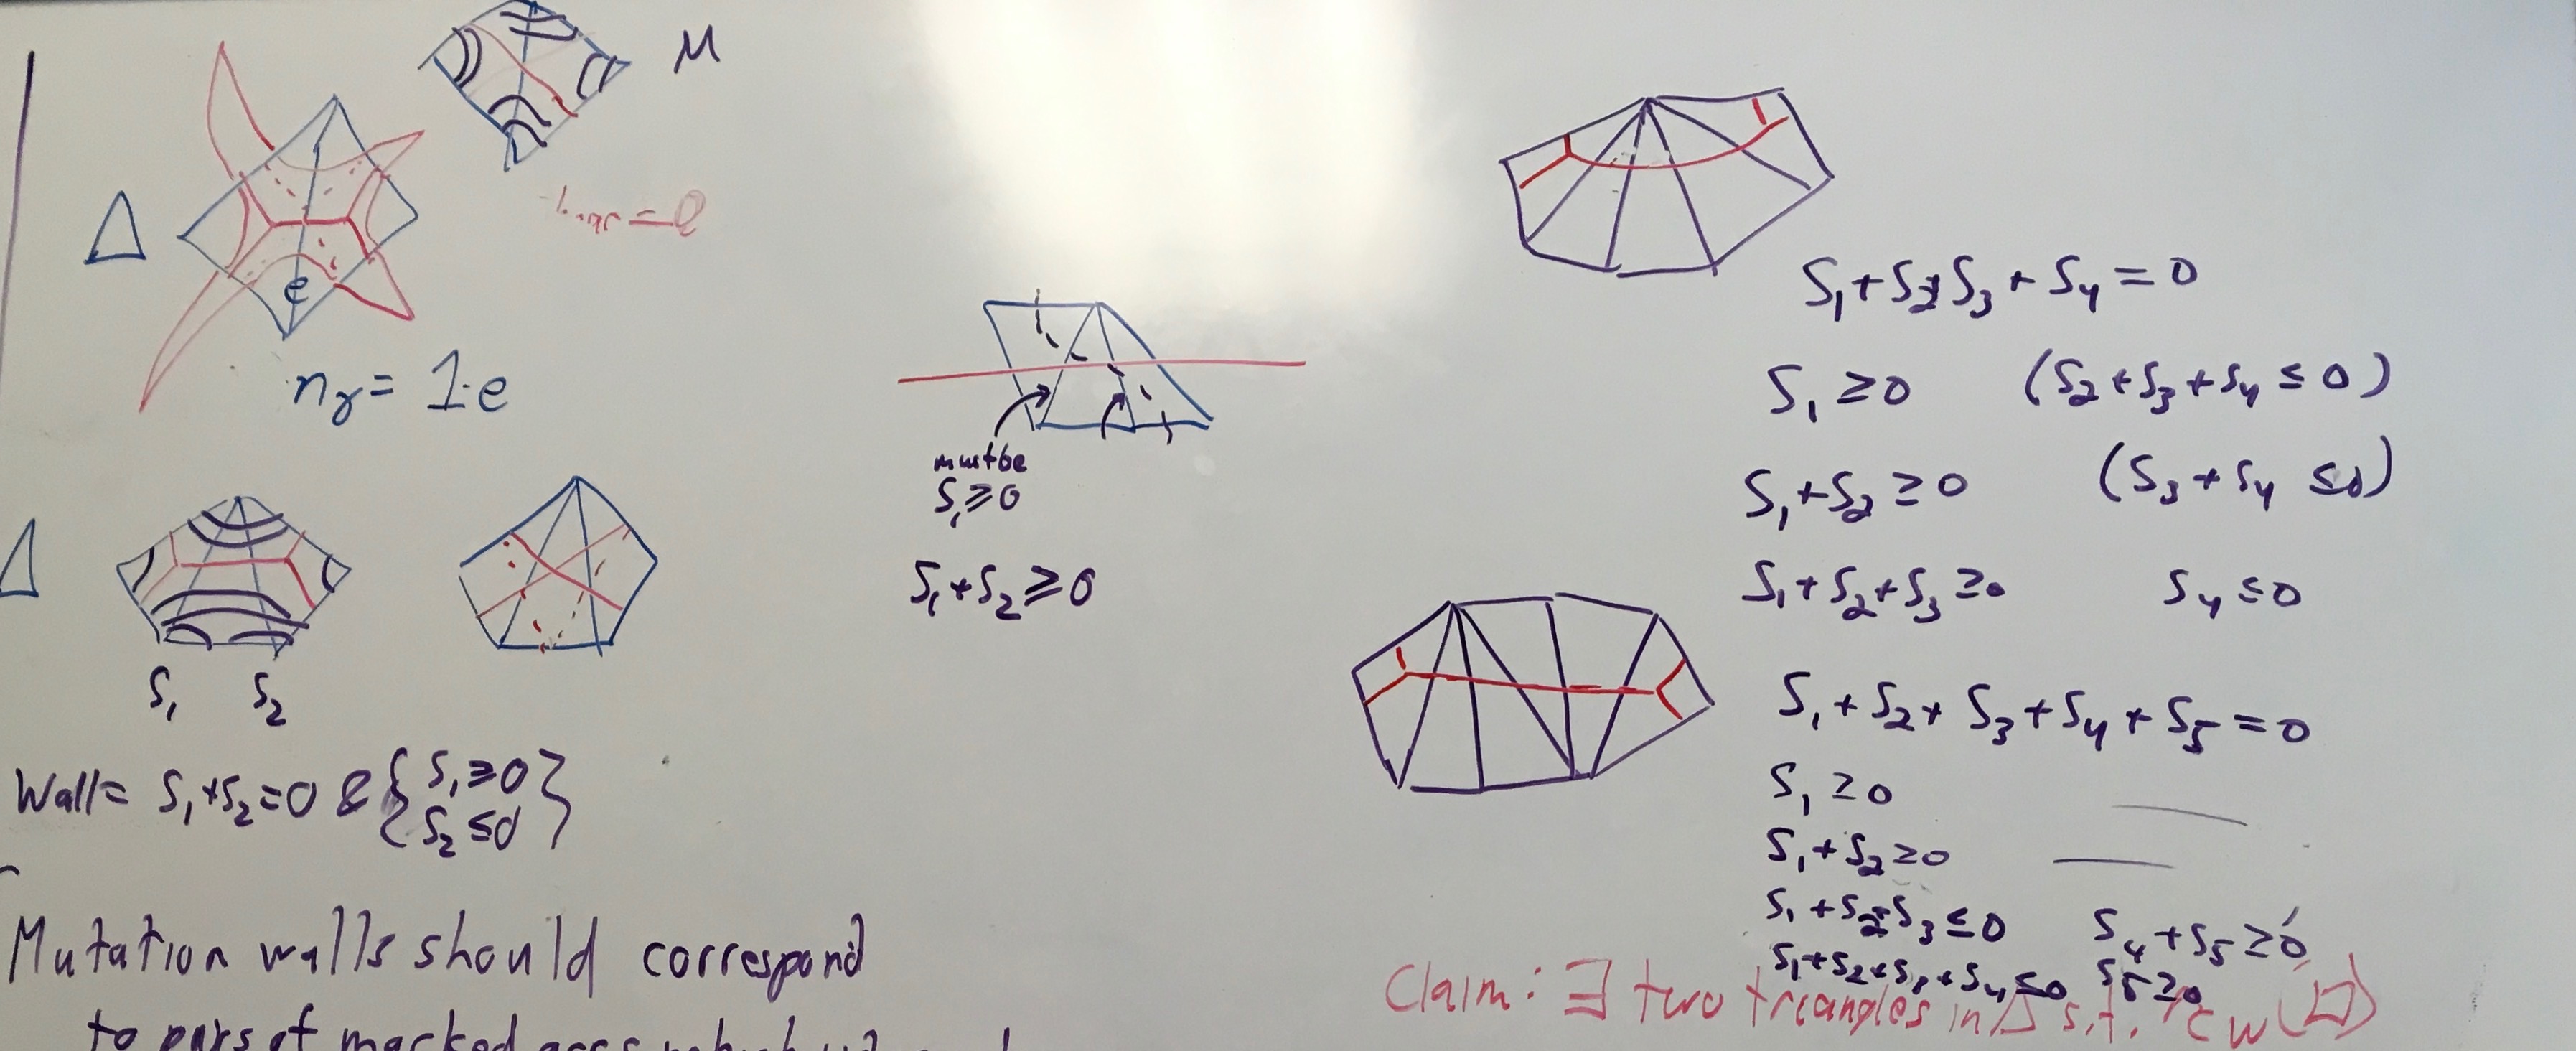 M
Δ
e
n_γ = 1·e
Δ
S₁ S₂
Wall = S₁+S₂=0 & { S₁≥0
S₂≤0 }
Mutation walls should correspond
to pairs of marked arcs
must be
S₁≥0
S₁+S₂≥0
S₁+S₂+S₃+S₄=0
S₁≥0 (S₂+S₃+S₄≤0)
S₁+S₂≥0 (S₃+S₄≤0)
S₁+S₂+S₃≥0 S₄≤0
S₁+S₂+S₃+S₄+S₅=0
S₁≥0
S₁+S₂≥0
S₁+S₂+S₃≤0 S₄+S₅≥0
S₁+S₂+S₃+S₄≤0 S₅≥0
Claim: ∃ two triangles in Δ s.t.